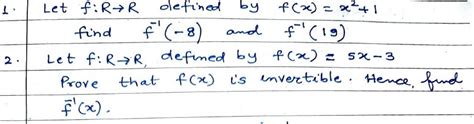 1. Let f: R→R defined by f(x) = x²+1
find f⁻¹(-8) and f⁻¹(19)
2. Let f: R→R, defined by f(x) = 5x-3
Prove that f(x) is invertible. Hence, find
f⁻¹(x).